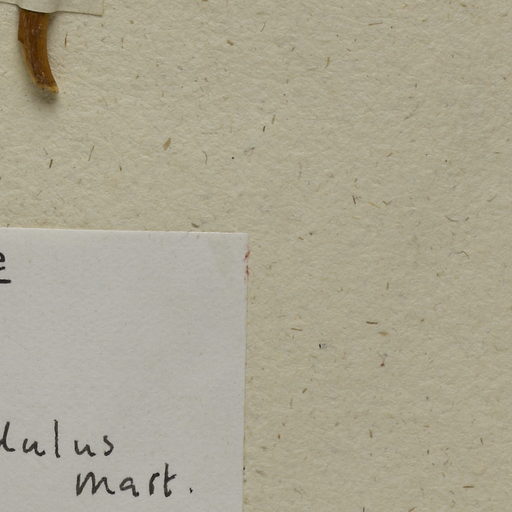 e
dulus
Mart.